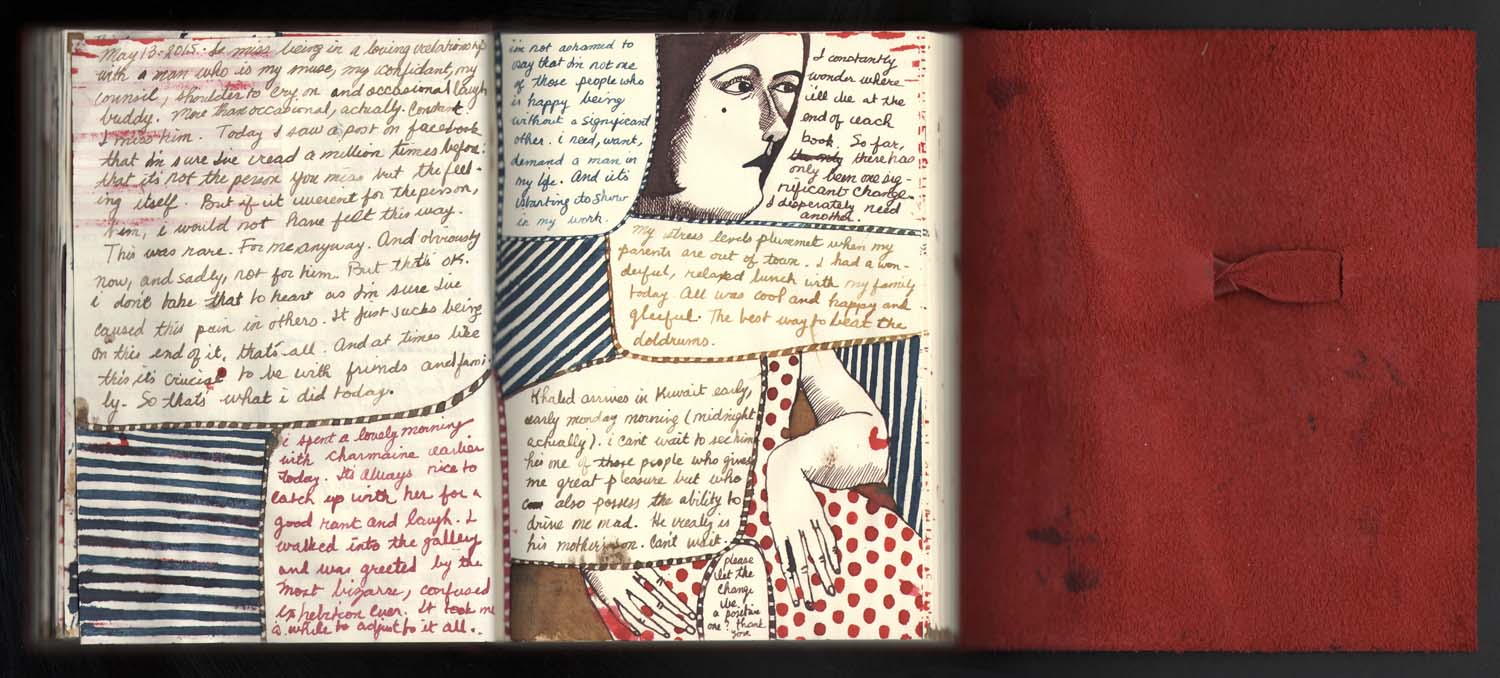 May 13. 2015. I miss being in a loving relationship
with a man who is my muse, my confidant, my
council, shoulder to cry on and occasional laugh
buddy. More than occasional, actually. Constant.
I miss him. Today I saw a post on facebook
that I'm sure I've read a million times before:
that it's not the person you miss but the feel-
ing itself. But if it werent for the person,
him, i would not have felt this way.
This was rare. For me anyway. And obviously
now, and sadly, not for him. But that's ok.
i don't take that to heart as I'm sure I've
caused this pain in others. It just sucks being
on this end of it, that's all. And at times like
this it's crucial to be with friends and fami-
ly. So that's what i did today.
i spent a lovely morning
with charmaine earlier
today. Its always nice to
catch up with her for a
good rant and laugh. I
walked into the gallery
and was greeted by the
most bizarre, confused
exhebition ever. It took me
a while to adjust to it all.
im not ashamed to
say that I'm not one
of those people who
is happy being
without a significant
other. i need, want,
demand a man in
my life. And it's
starting to show
in my work.
I constantly
wonder where
i'll be at the
end of each
book. So far,
the only there has
only been one sig-
nificant change.
I desperately need
another.
my stress levels plummet when my
parents are out of town. I had a won-
derful, relaxed lunch with my family
today. All was cool and happy and
gleeful. The best way to beat the
doldrums.
Khaled arrives in Kuwait early,
early monday morning (midnight
actually). i can't wait to see him
he's one of those people who gives
me great pleasure but who
can also possess the ability to
drive me mad. He really is
his mother's son. Can't wait.
please
let the
change
be
a positive
one? thank
you